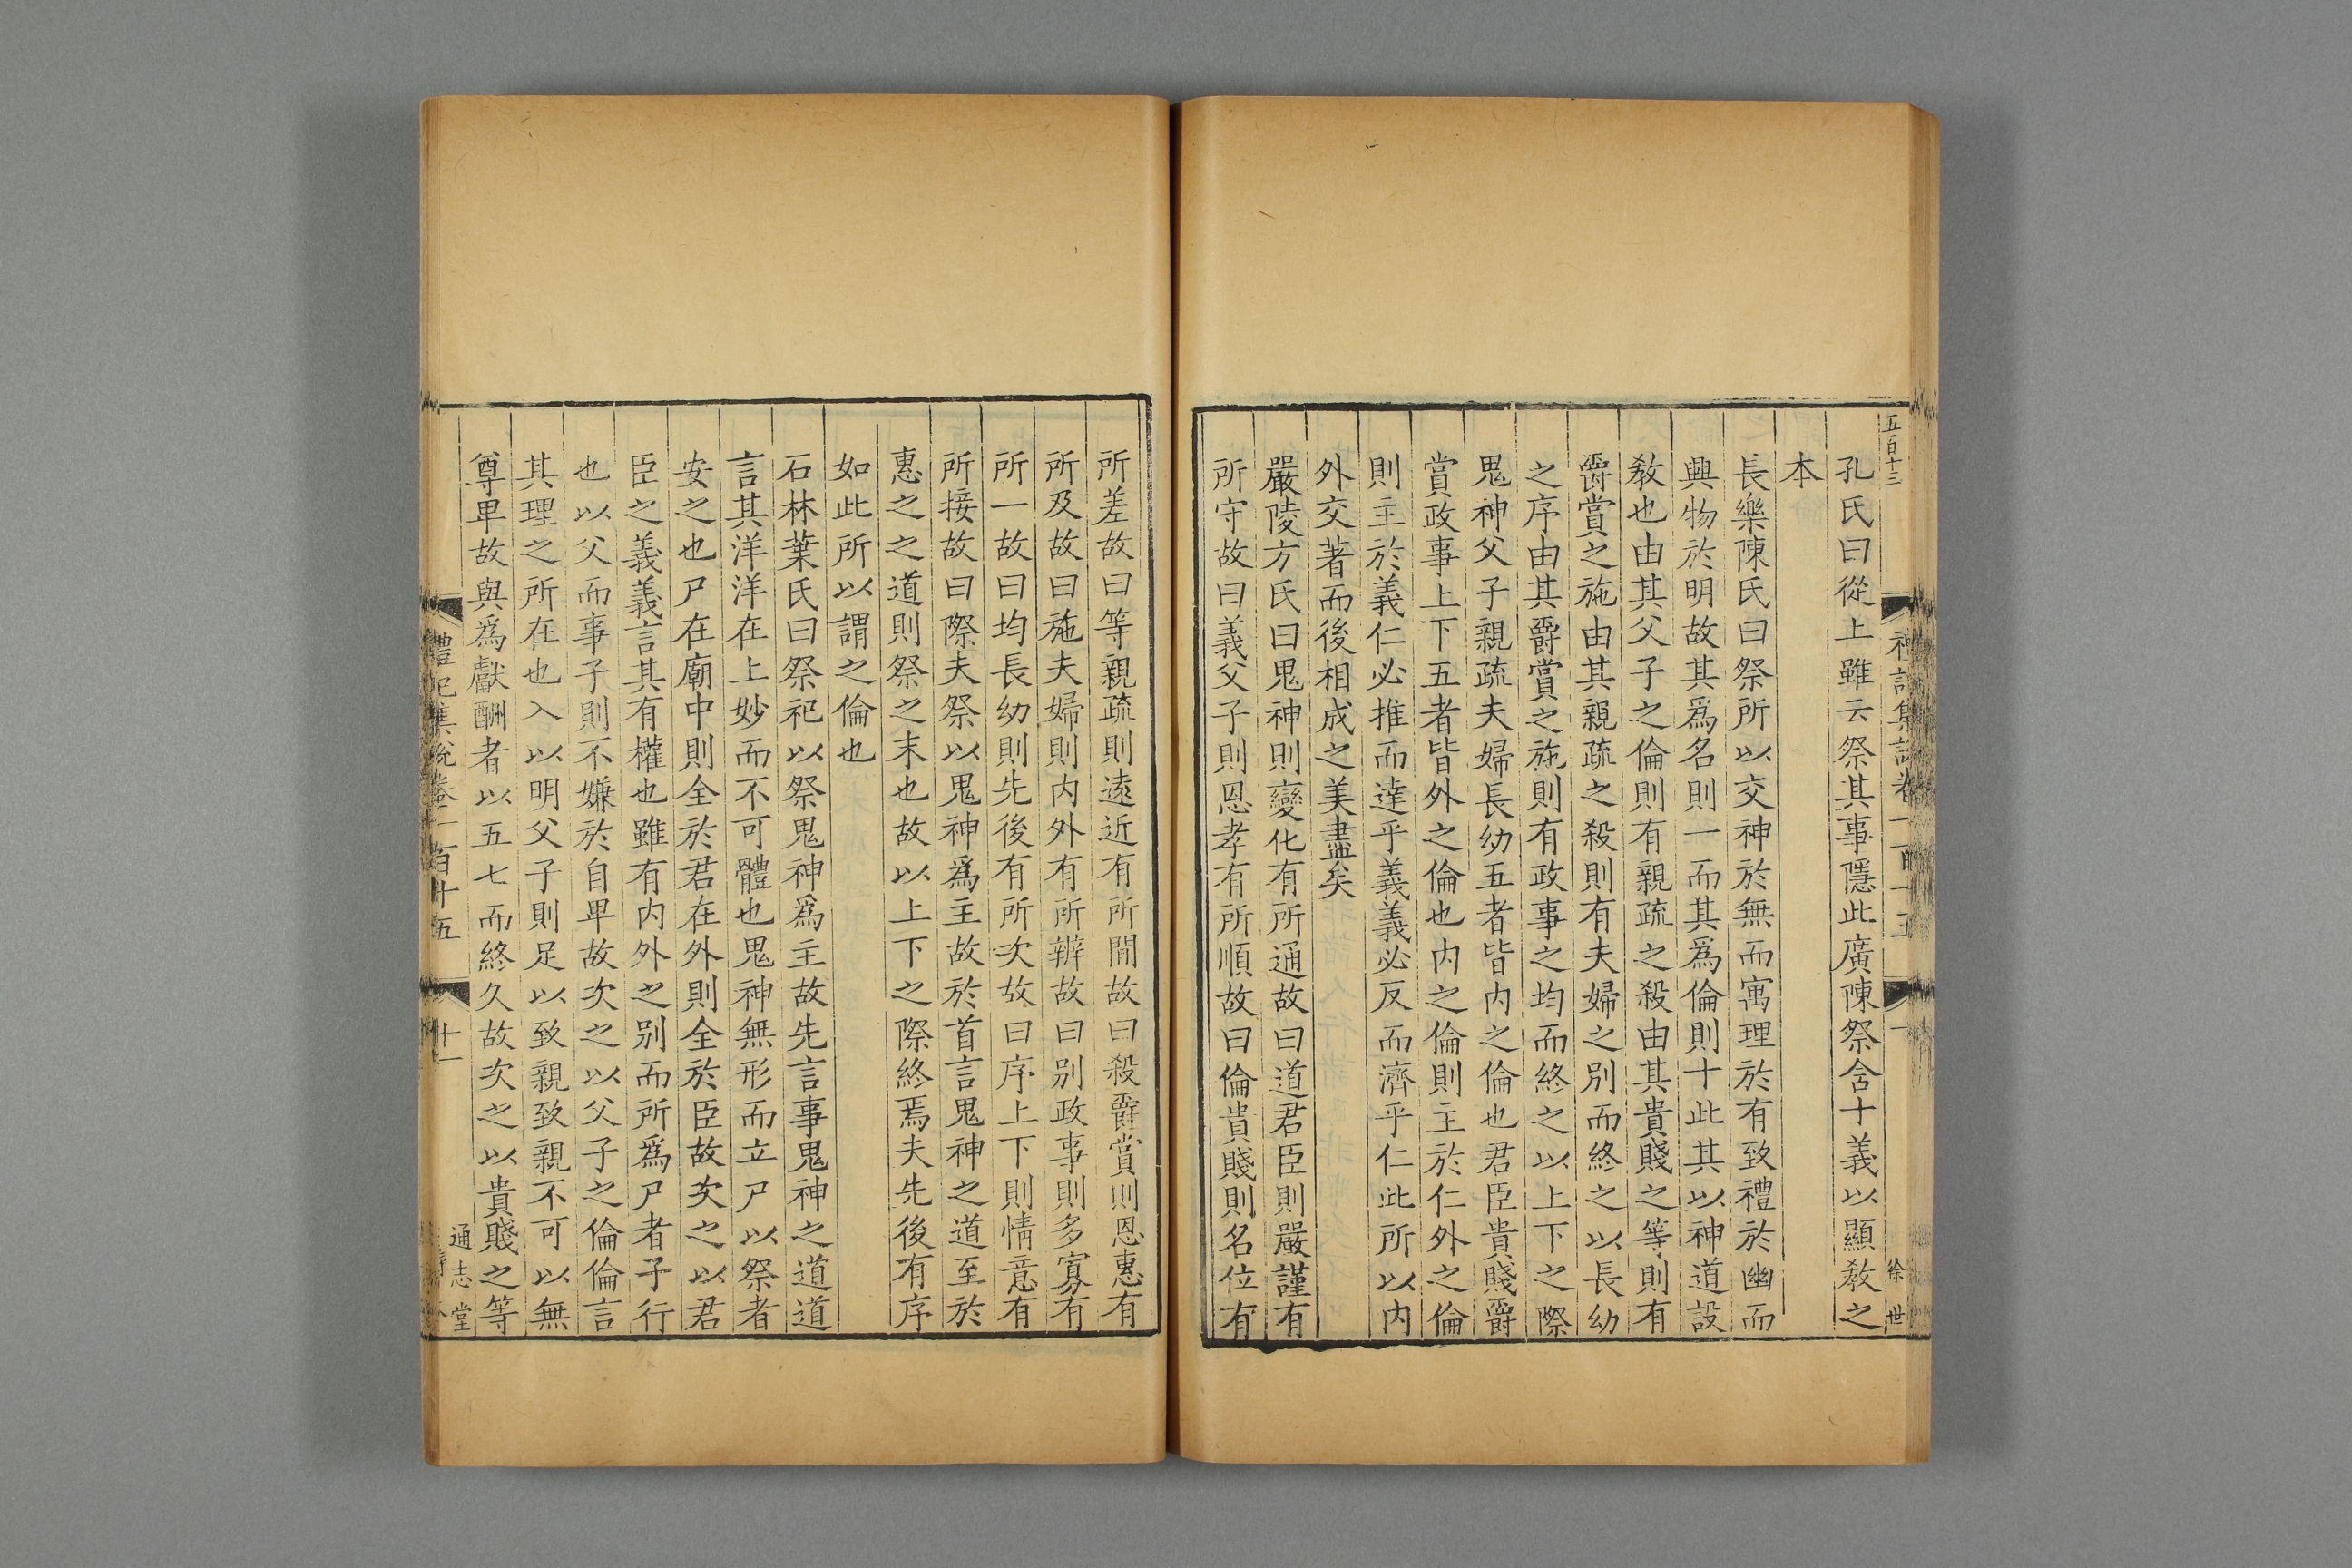 五百十三
徐世
孔氏曰從上雖云祭其事隱此廣陳祭含十義以顯敎之
本
長樂陳氏曰祭所以交神於無而寓理於有致禮於幽而
興物於明故其爲名則一而其爲倫則十此其以神道設
敎也由其父子之倫則有親疏之殺由其貴賤之等則有
爵賞之施由其親疏之殺則有夫婦之別而終之以長幼
之序由其爵賞之施則有政事之均而終之以上下之際
鬼神父子親疏夫婦長幼五者皆内之倫也君臣貴賤爵
賞政事上下五者皆外之倫也内之倫則主於仁外之倫
則主於義仁必推而達乎義義必反而濟乎仁此所以内
外交著而後相成之美盡矣
嚴陵方氏曰鬼神則變化有所通故曰道君臣則嚴謹有
所守故曰義父子則恩孝有所順故曰倫貴賤則名位有
所差故曰等親疏則遠近有所間故曰殺爵賞則恩惠有
所及故曰施夫婦則内外有所辨故曰别政事則多寡有
所一故曰均長幼則先後有所次故曰序上下則情意有
所接故曰際夫祭以鬼神爲主故於首言鬼神之道至於
惠之之道則祭之末也故以上下之際終焉夫先後有序
如此所以謂之倫也
石林葉氏曰祭祀以祭鬼神爲主故先言事鬼神之道道
言其洋洋在上妙而不可體也鬼神無形而立尸以祭者
安之也尸在廟中則全於君在外則全於臣故次之以君
臣之義義言其有權也雖有内外之别而所爲尸者子行
也以父而事子則不嫌於自卑故次之以父子之倫倫言
其理之所在也入以明父子則足以致親致親不可以無
尊卑故與爲獻酬者以五七而終久故次之以貴賤之等
禮記集說卷一百十五
十一
通志堂